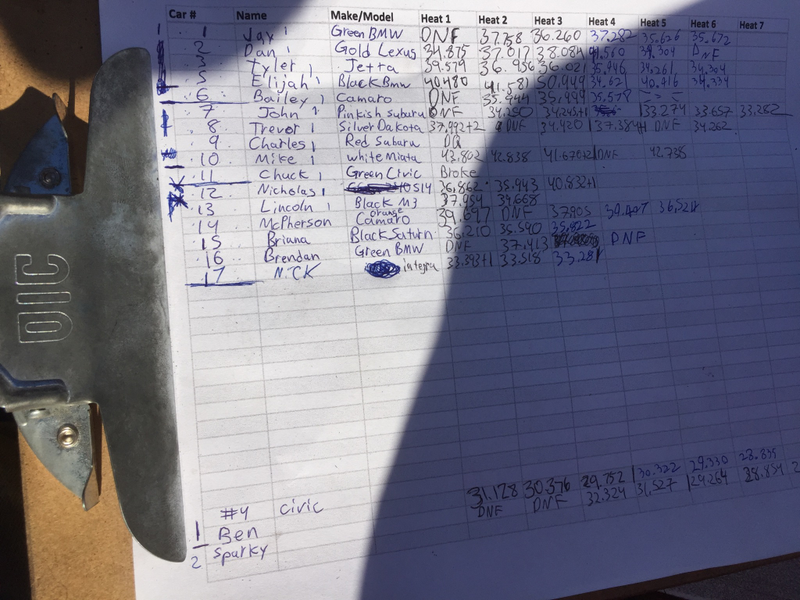 Car # Name Make/Model Heat 1 Heat 2 Heat 3 Heat 4 Heat 5 Heat 6 Heat 7
1 Jax 1 Green BMW DNF 37.758 36.260 37.282 35.626 35.672
2 Dan 1 Gold Lexus 34.875 37.017 38.084 41.560 39.304 DNF
3 Tyler 1 Jetta 39.579 36.956 36.021 34.261 34.304
5 Elijah 1 Black Bmw 40.480 41.581 50.949 40.716
6 Bailey 1 Camaro DNF 35.944 35.578
7 John 1 Pinkish Subaru DNF 34.250 33.274 33.657 33.282
8 Trevor 1 Silver Dakota 37.992+2 DNF 34.420 37.384+1 DNF 34.262
9 Charles 1 Red Subaru DQ
10 Mike 1 white Miata 43.802 42.838 DNF 42.738
11 Chuck 1 Green Civic Broke
12 Nicholas 1 S14 36.862 35.943 40.832+1
13 Lincoln 1 Black M3 37.954 34.668
14 McPherson orange Camaro DNF 37.805 36.524
15 Briana Black Saturn 36.210 35.590 35.822
16 Brendan Green BMW DNF 37.413 DNF
17 NICK integra 33.393+1 33.518 33.281
#4 Civic 31.128 30.376 29.752 30.322 29.330 28.835
1 Ben DNF DNF 32.324 31.527 29.264 28.854
2 Sparky
DIC